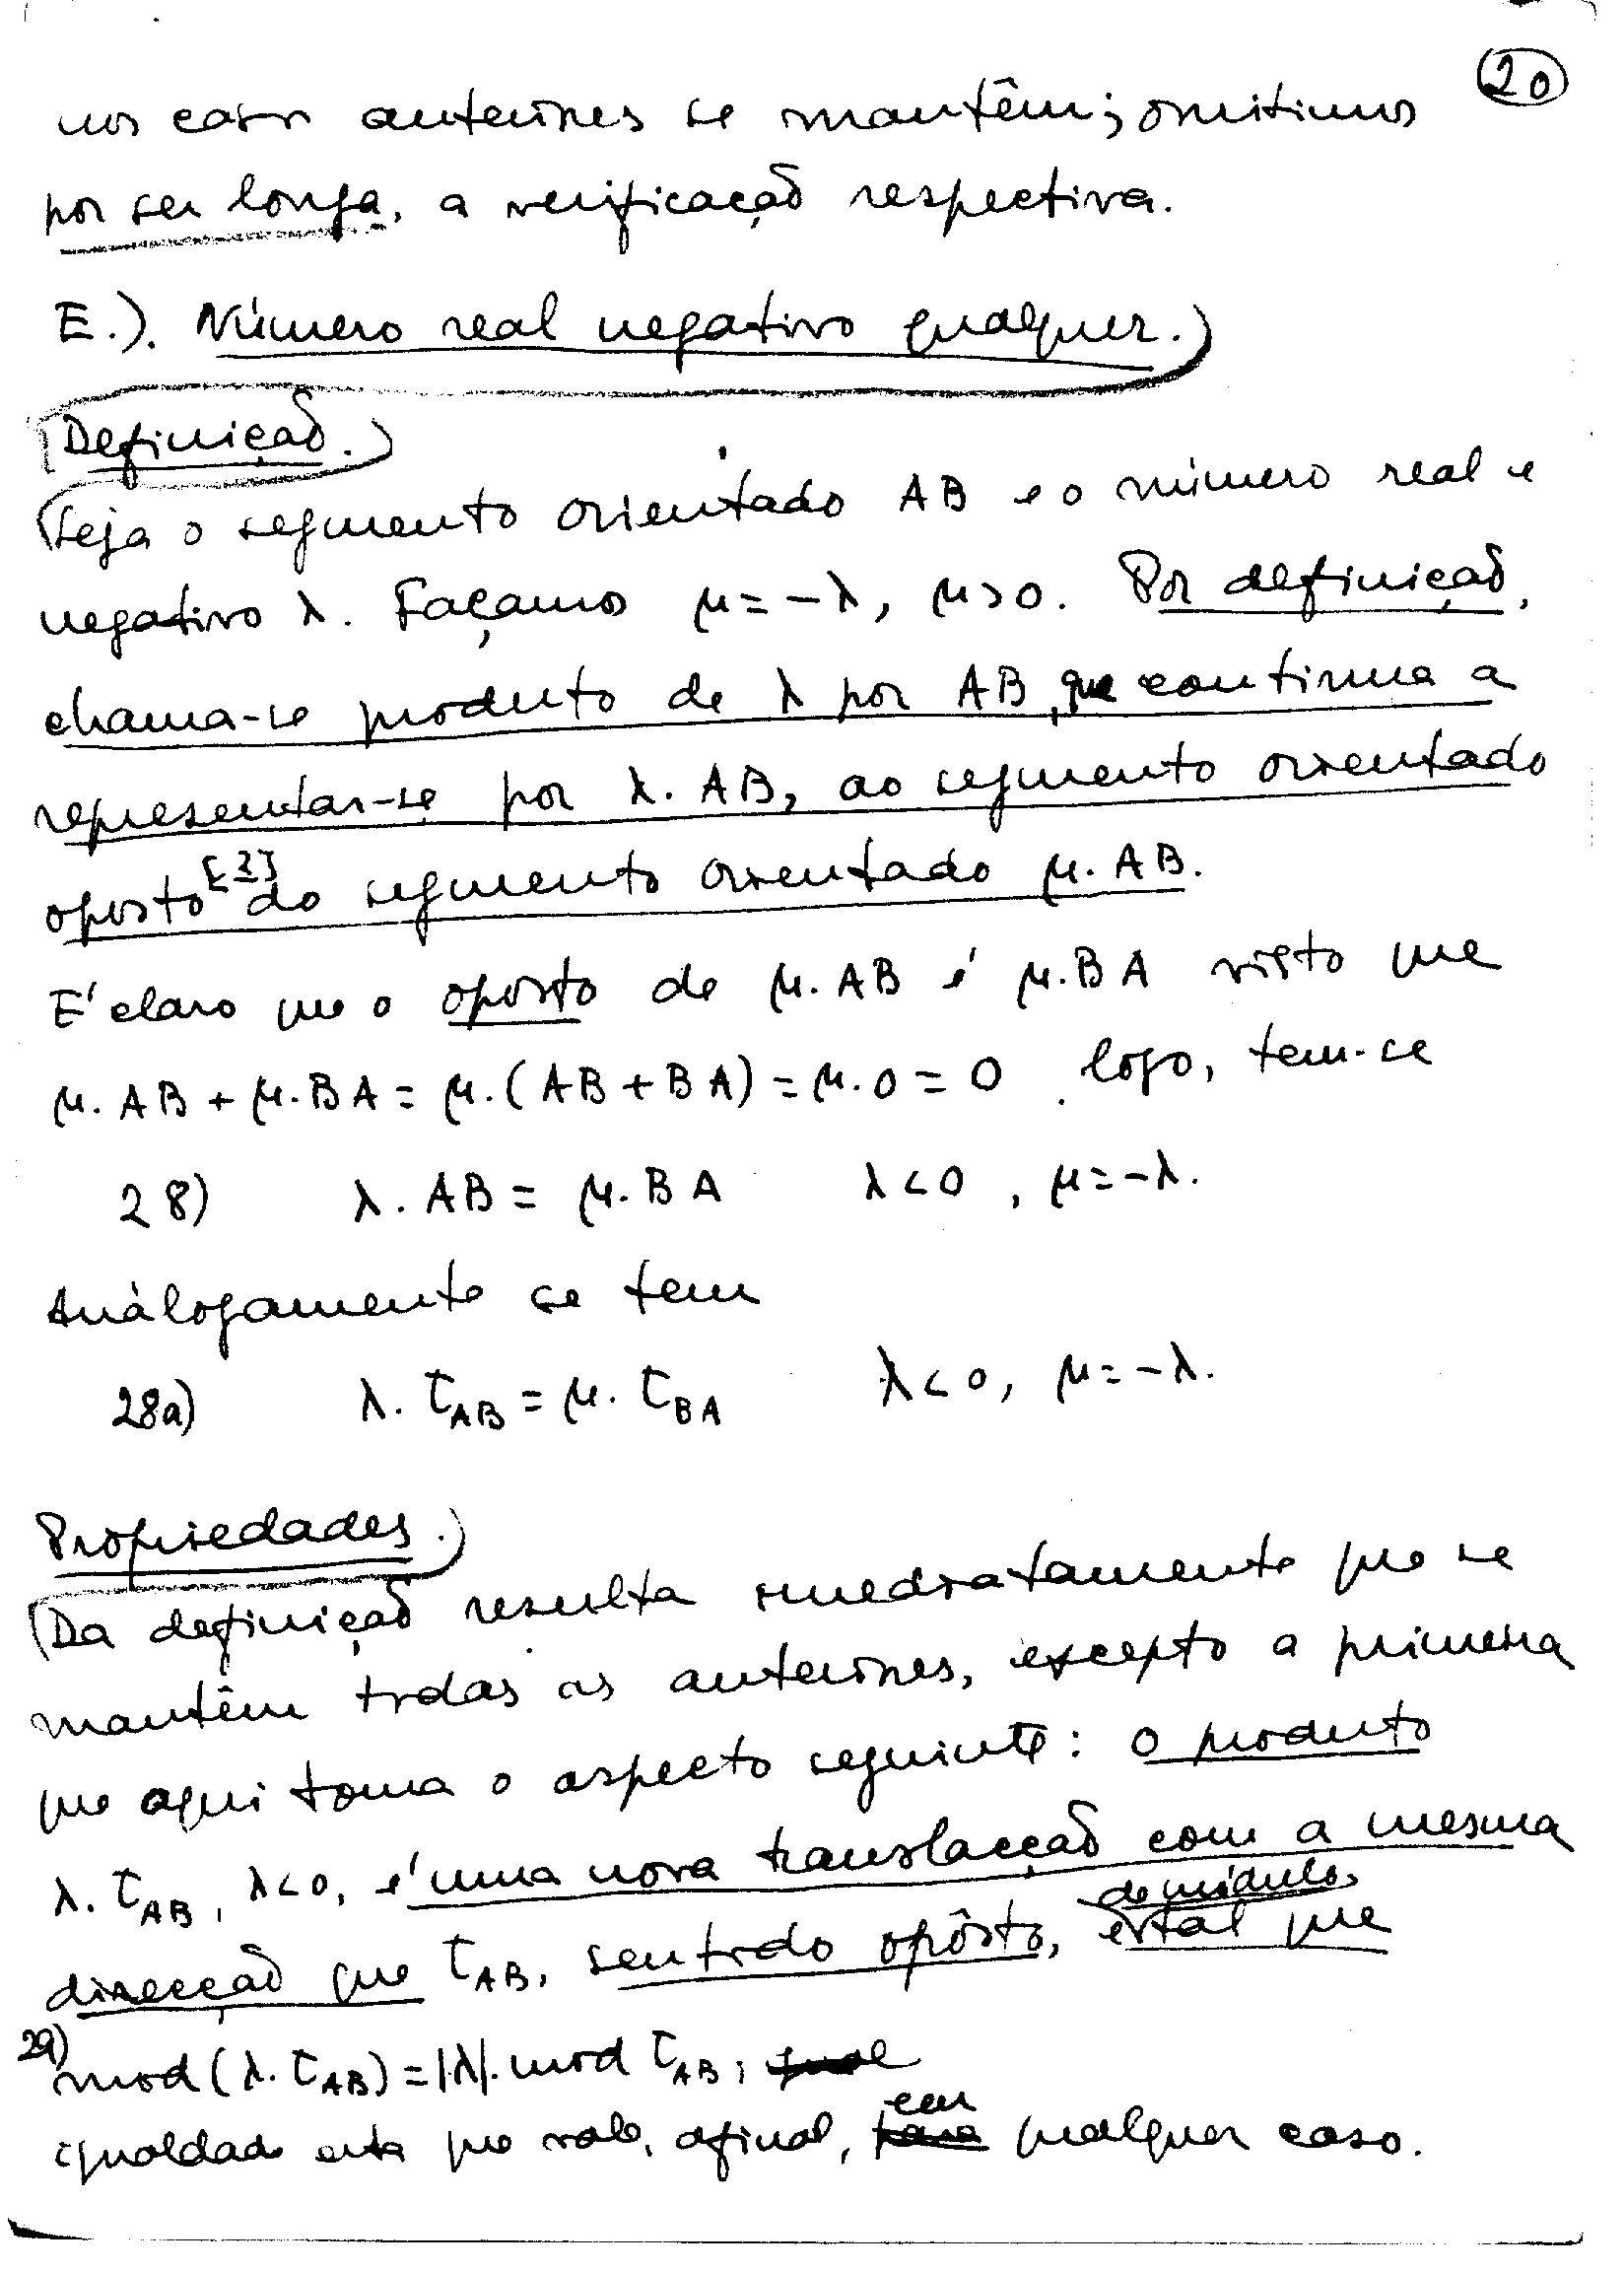 20
nos casos anteriores se mantêm; omitimos
por ser longa, a verificação respectiva.
E.). Número real negativo qualquer.)
Definição.)
Seja o segmento orientado AB e o número real e
negativo λ. Façamos μ = -λ, μ > 0. Por definição,
chama-se produto de λ por AB, que continua a
representar-se por λ. AB, ao segmento orientado
oposto [3] do segmento orientado μ. AB.
E' claro que o oposto de μ. AB é μ. BA visto que
μ. AB + μ. BA = μ. (AB + BA) = μ. 0 = 0. logo, tem-se
28) λ. AB = μ. BA λ < 0, μ = -λ.
Anàlogamente se tem
28a) λ. τAB = μ. τBA λ < 0, μ = -λ.
Propriedades.)
Da definição resulta imediatamente que se
mantêm todas as anteriores, excepto a primeira
que aqui toma o aspecto seguinte: o produto
λ. τAB, λ < 0, é uma nova translacção com a mesma
direcção que τAB, sentido opôsto, de módulo
tal que
29) mod (λ. τAB) = |λ|. mod τAB,
igualdade esta que vale, afinal, em qualquer caso.